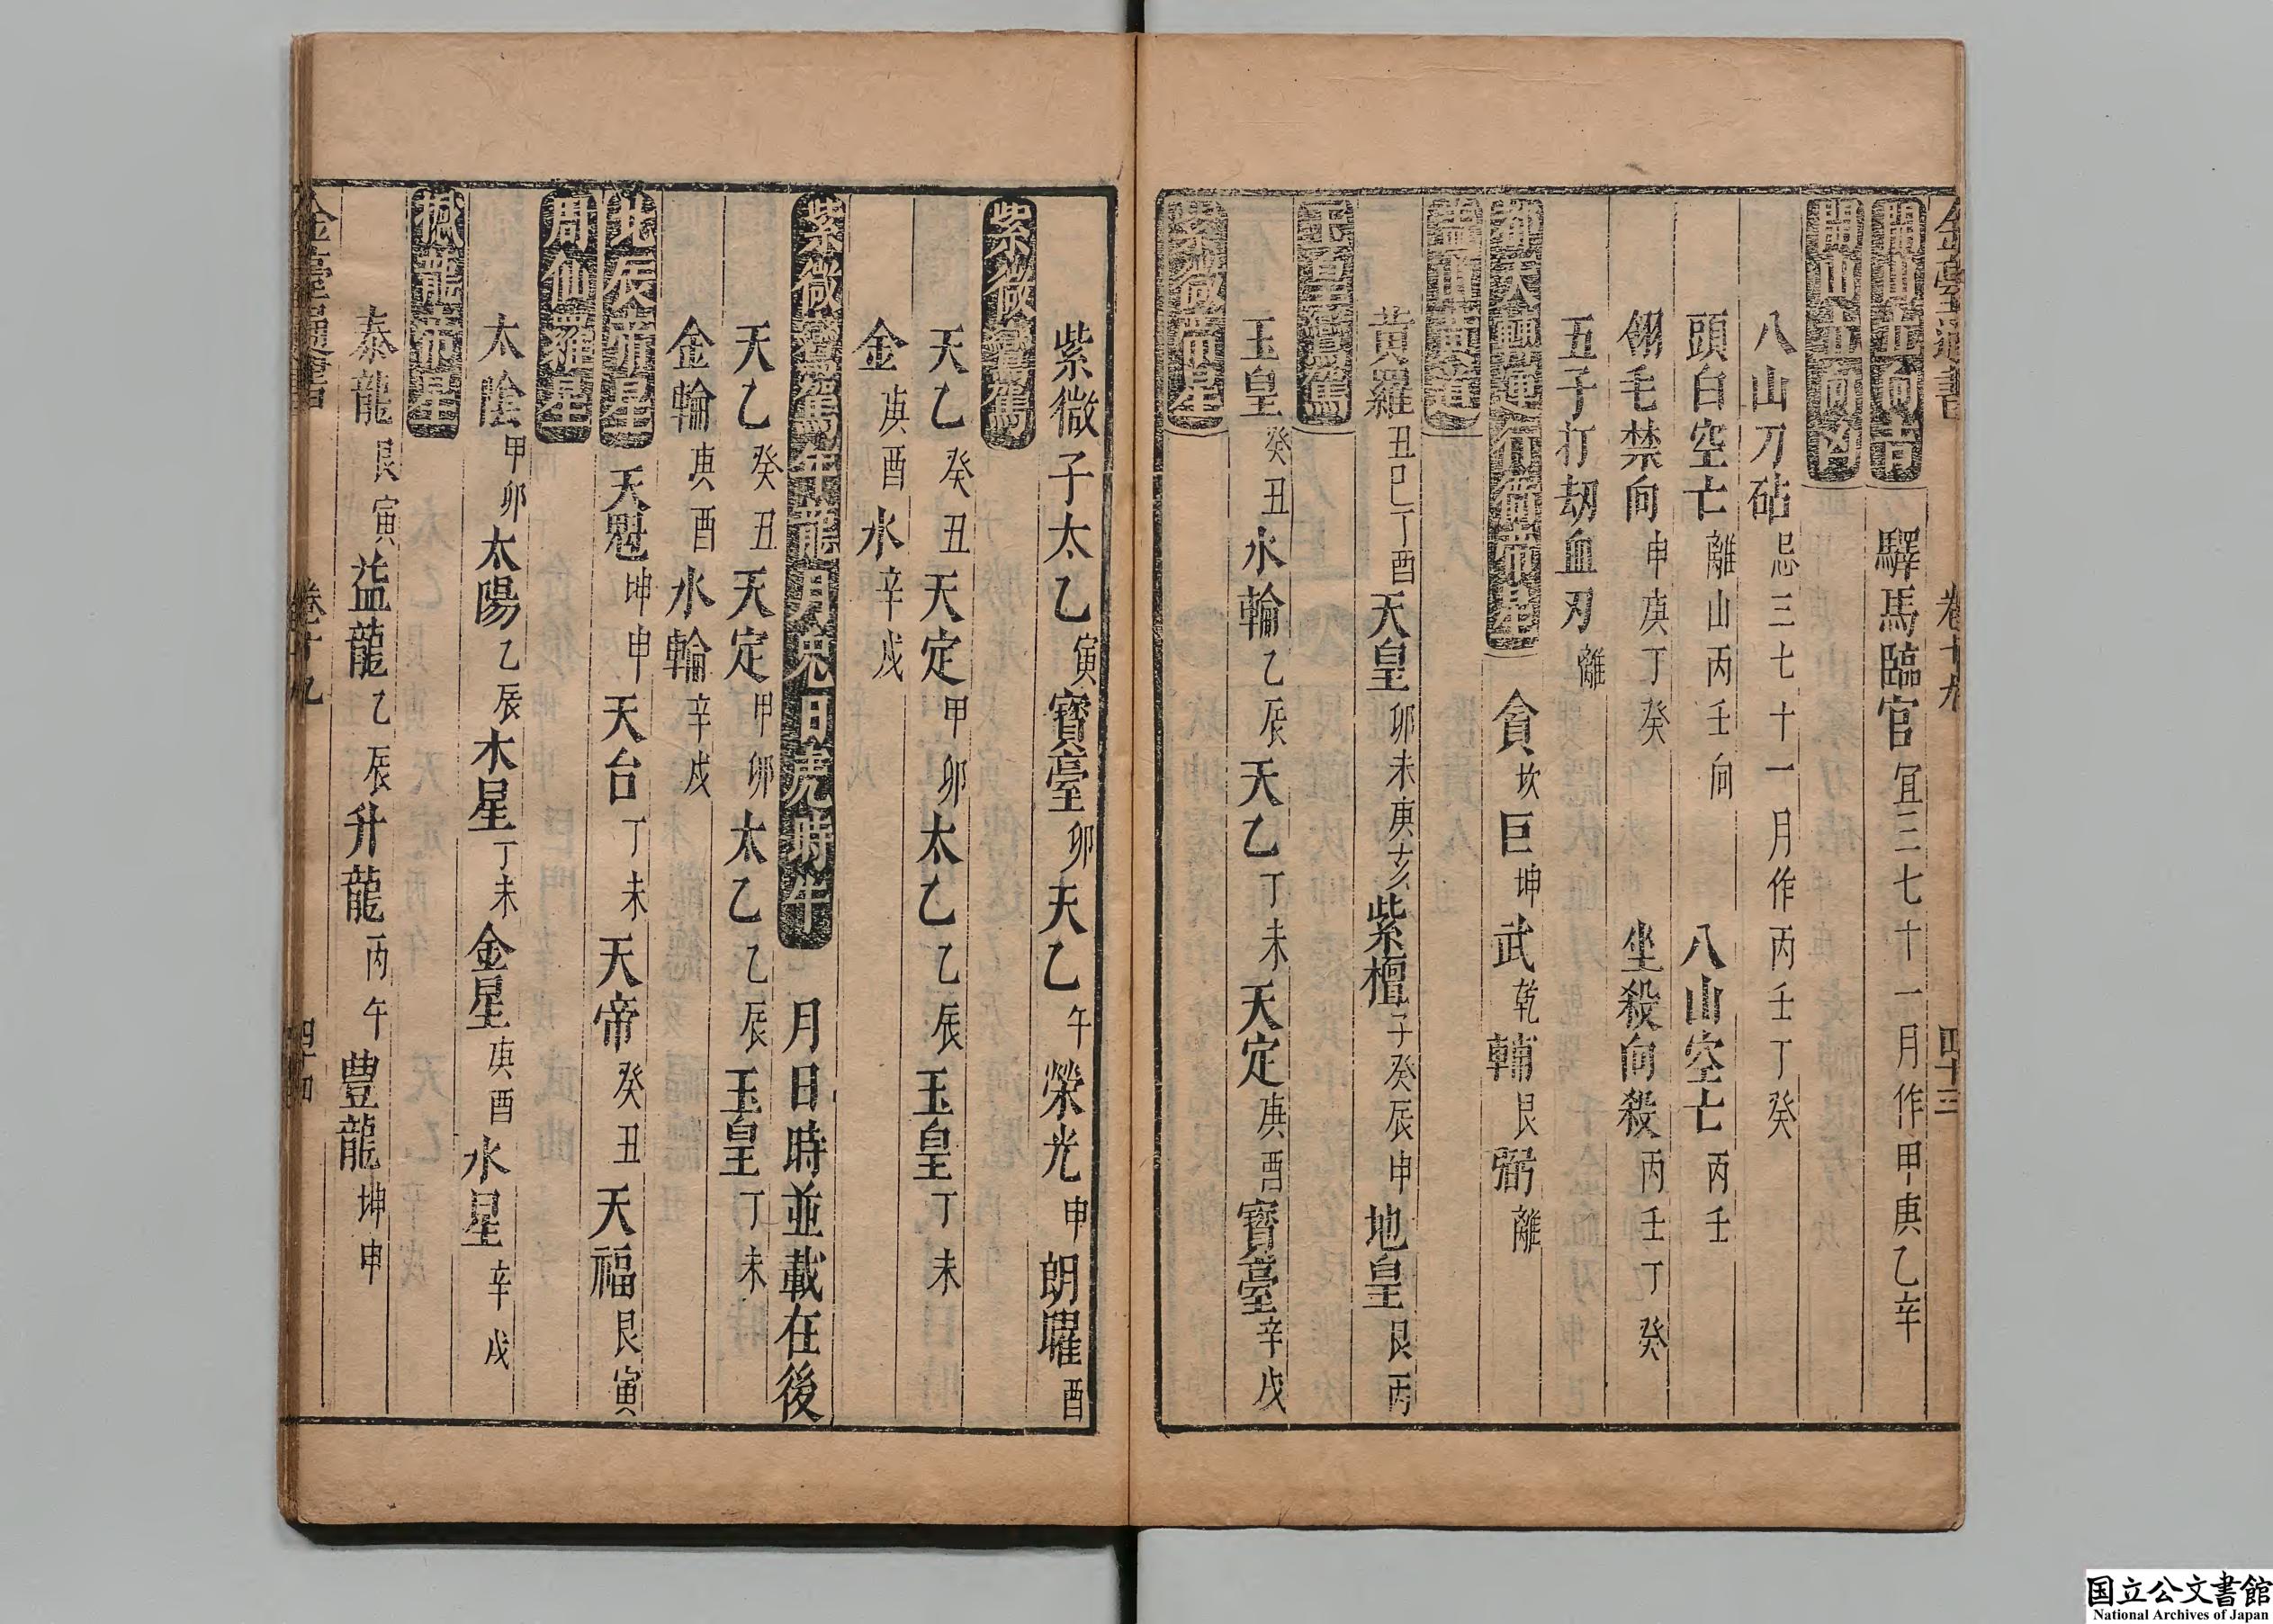 卷十九
四十三
開山立向吉 驛馬臨官宜三七十一月作甲庚乙辛
開山立向凶
八山刀砧忌三七十一月作丙壬丁癸
頭白空亡離山丙壬向 八山空亡丙壬
翎毛禁向申庚丁癸 坐殺向殺丙壬丁癸
五子打刼血刃離
都天轉運行衙帝星 貪坎巨坤武乾輔艮弼離
蓋山黃道
黃羅丑巳丁酉天皇卯未庚亥紫檀子癸辰申地皇艮丙
玉皇鑾駕
玉皇癸丑水輪乙辰天乙丁未天定庚酉寶臺辛戌
紫微帝星
紫微子太乙寅寶臺卯天乙午榮光申朗曜酉
紫微鑾駕
天乙癸丑天定甲卯太乙乙辰玉皇丁未
金庚酉水辛戌
紫微鑾駕年龍月兔日虎時牛 月日時並載在後
天乙癸丑天定甲卯太乙乙辰玉皇丁未
金輪庚酉水輪辛戌
北辰帝星 天魁坤申天台丁未天帝癸丑天福艮寅
周仙羅星
太陰甲卯太陽乙辰木星丁未金星庚酉水星辛戌
撼龍帝星
泰龍艮寅益龍乙辰升龍丙午豊龍坤申
卷十九
四十四
国立公文書館
National Archives of Japan